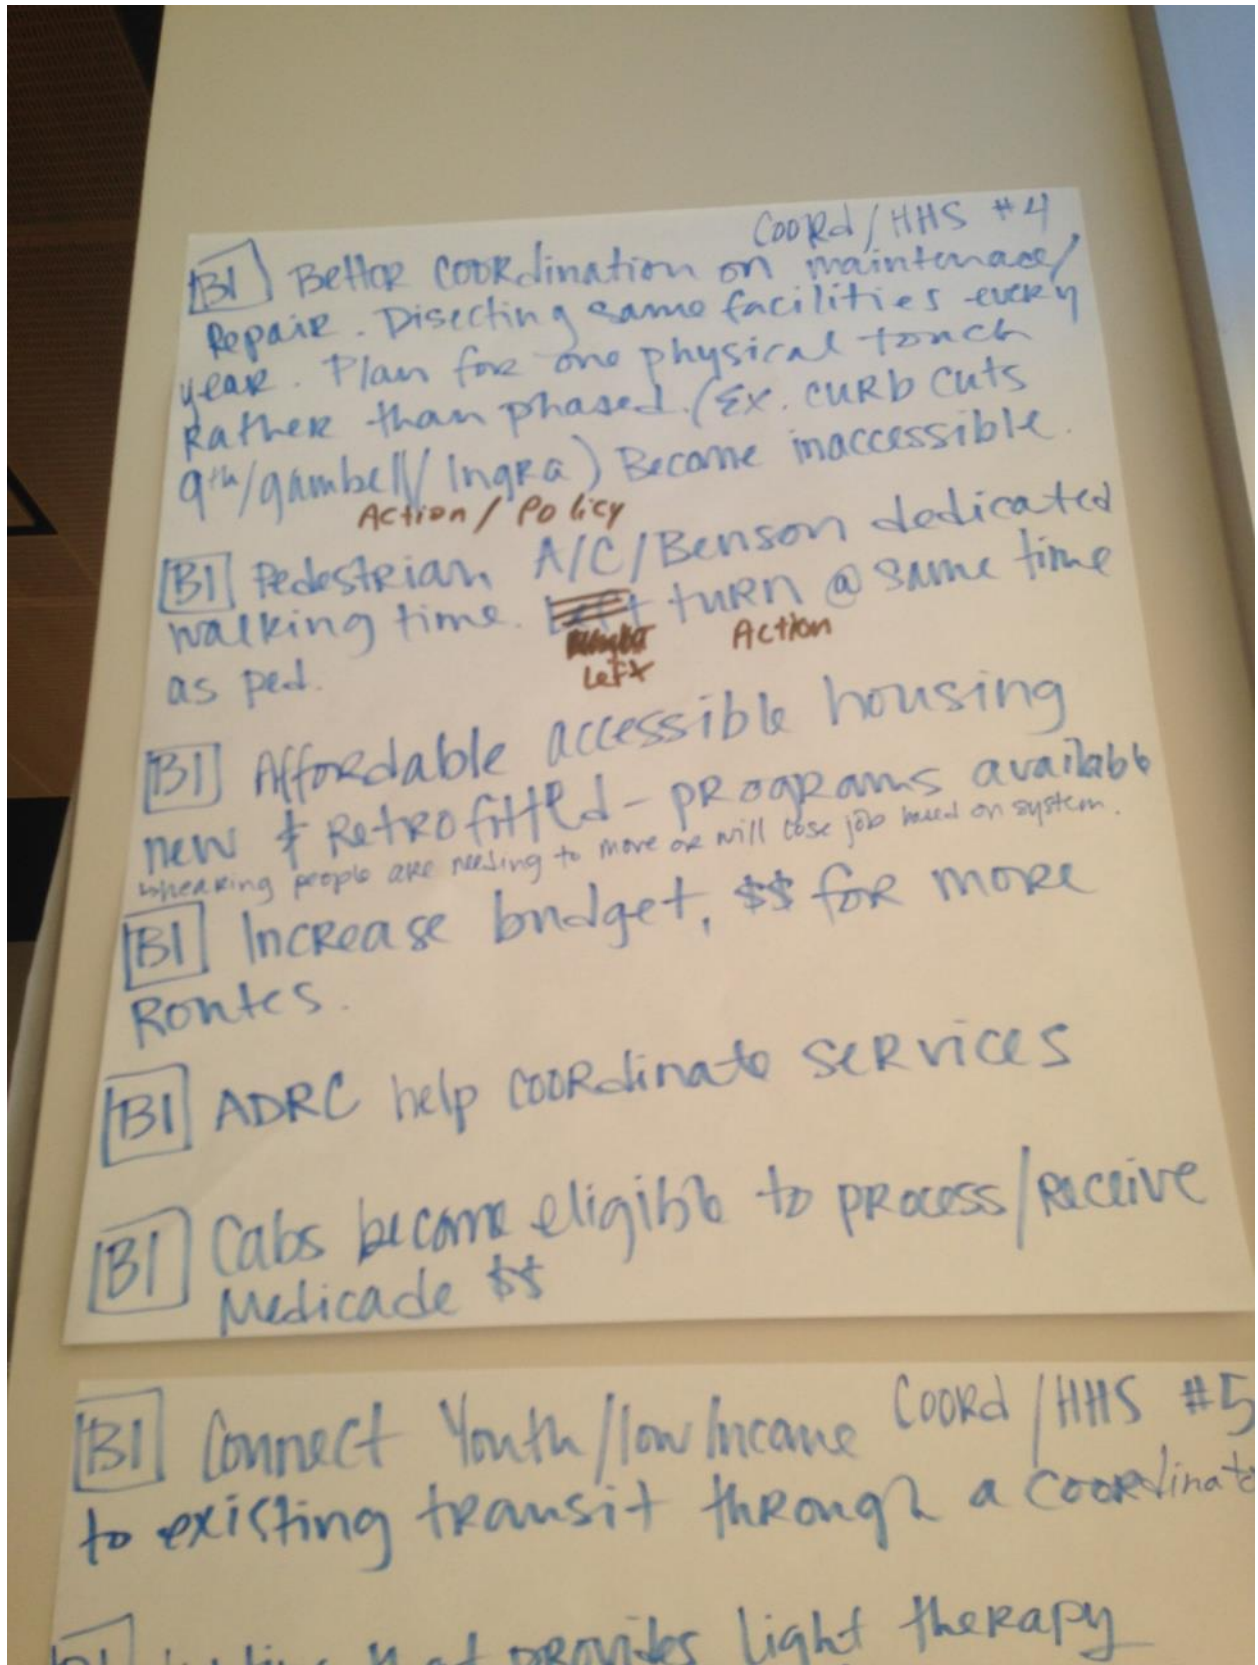 Coord/HHS #4
BI Better coordination on maintenace/
Repair. Disecting same facilities every
year. Plan for one physical touch
Rather than phased. (Ex. curb cuts
9th/gambell/Ingra) Become inaccessible.
Action/Policy
BI Pedestrian A/C/Benson dedicated
walking time. Left turn @ same time
Left Action
as ped.
BI Affordable accessible housing
new & Retrofitted - programs available
hearing people are needing to move or will lose job based on system.
BI Increase budget, $$ for more
Routes.
BI ADRC help coordinate services
BI Cabs become eligible to process/receive
Medicade $$
Coord/HHS #5
BI Connect Youth/low income
to existing transit through a coordinato
BI that provides light therapy